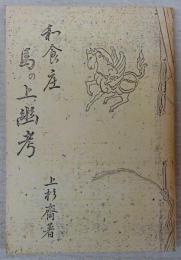 和食庄
馬の上幽考
上杉齋著